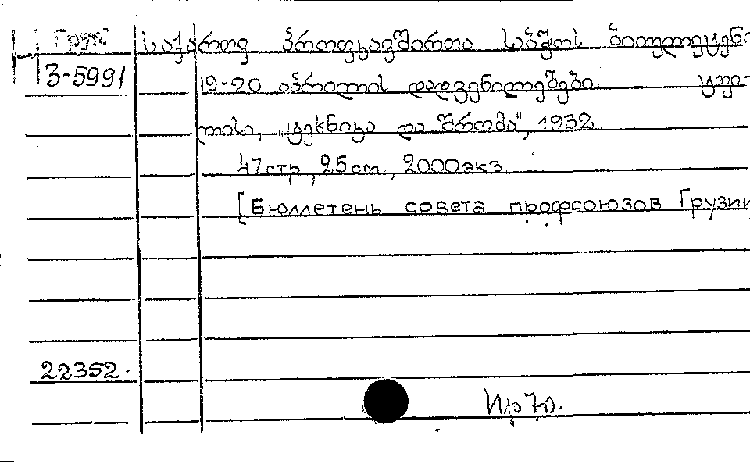 Груз საქართვ პროფკავშირთა საბჭოს ბიულეტენი
3-5991 19-20 აპრილის დადგენილებები ტფი-
ლისი, „ტექნიკა და შრომა", 1932
47 стр, 25 см., 2000 экз.
[Бюллетень совета профсоюзов Грузии
22352.